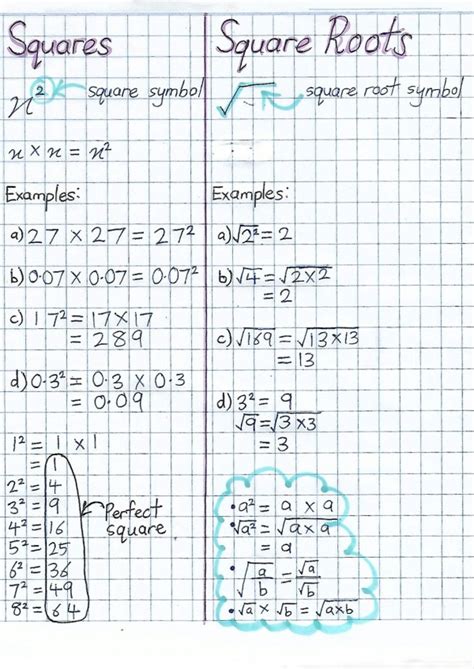 Squares
x² square symbol
x × x = x²
Examples:
a) 27 × 27 = 27²
b) 0·07 × 0·07 = 0·07²
c) 17² = 17×17
= 289
d) 0·3² = 0·3 × 0·3
= 0·09
1² = 1 × 1
= 1
2² = 4
3² = 9
4² = 16
5² = 25
6² = 36
7² = 49
8² = 64
Perfect
square
Square Roots
√ square root symbol
Examples:
a) √2² = 2
b) √4 = √2×2
= 2
c) √169 = √13×13
= 13
d) 3² = 9
√9 = √3×3
= 3
• a² = a × a
• √a² = √a×a
= a
• √a/b = √a/√b
• √a × √b = √a×b